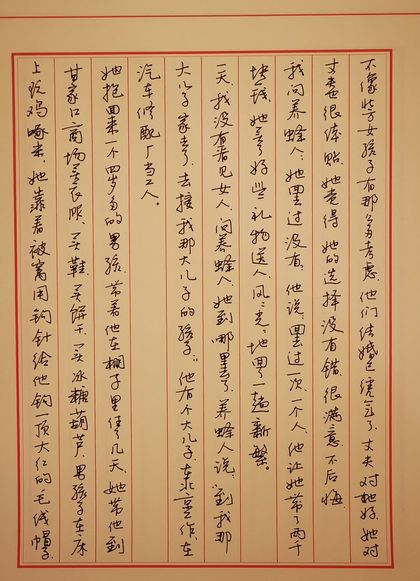 不像些女孩子有那多考虑。他们结婚已经几年了。丈夫对她好，她对
丈夫也很体贴。她觉得她的选择没有错，很满意，不后悔。
我问养蜂人：她回过没有，他说：回过一次，一个人，他让她带了两千
块钱，她买了好些礼物送人，风风光光地回了一趟新繁。
一天，我没有看见女人，问养蜂人，她到哪里去了。养蜂人说：“到我那
大儿子家去了，去接我那大儿子的孩子。”他有个大儿子，在北京工作，在
汽车修配厂当工人。
她抱回来一个四岁多的男孩，带着他在棚子里住了几天。她带他到
甘家口商场买衣服，买鞋，买饼干，买冰糖葫芦。男孩子在床
上玩鸡啄米，她靠着被窝用钩针给他钩一顶大红的毛线帽子